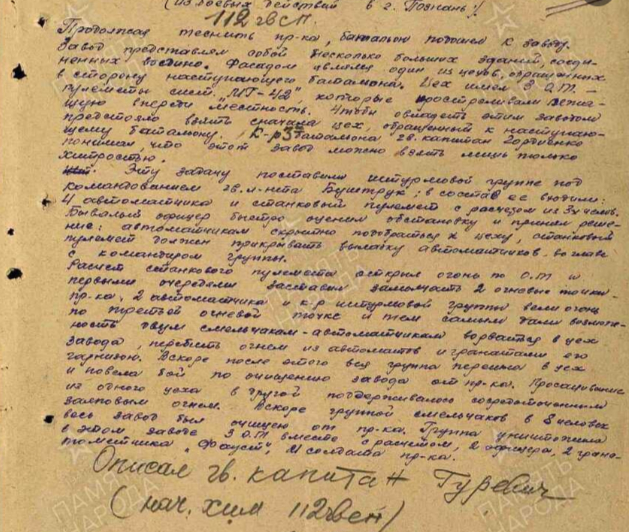 (из боевых действий в г. Познань)
112 гвсп.
Продолжая теснить пр-ка, батальон подошел к заводу.
Завод представлял собой несколько больших зданий, соеди-
ненных воедино. Фасадом являлся один из цехов, обращенных
в сторону наступающего батальона. Цех имел 3 О.Т. –
пулеметы сист. "МГ-42", которые простреливали всю
щую впереди местность. Чтобы овладеть этим заводом
предстояло взять сначала цех, обращенный к наступаю-
щему батальону. К-р батальона гв. капитан Гордиенко
понимал, что этот завод можно взять лишь только
хитростью.
Эту задачу поставили штурмовой группе под
командованием гв. л-нта Буштрук: в состав ее входили:
4 автоматчика и станковый пулемет с расчетом из 3х человек.
Бывалый офицер быстро оценил обстановку и принял реше-
ние: автоматчикам скрытно подобраться к цеху, станковый
пулемет должен прикрывать вылазку автоматчиков во главе
с командиром группы.
Расчет станкового пулемета открыл огонь по О.Т. и
первыми очередями заставил замолчать 2 огневые точки
пр-ка. 2 автоматчика и к-р штурмовой группы вели огонь
по третьей огневой точке и тем самым дали возмож-
ность двум смельчакам-автоматчикам ворваться в цех
завода, перебить огнем из автоматов и гранатами его
гарнизон. Вскоре после этого вся группа перешла в цех
и повела бой по очищению завода от пр-ка. Просачивание
из одного цеха в другой поддерживалось сосредоточенным
залповым огнем. Вскоре группой смельчаков в 8 человек
весь завод был очищен от пр-ка. Группа уничтожила
в этом заводе 3 О.Т. вместе с расчетом, 2 офицера, 2 грана-
тометчика "Фауст", 21 солдата пр-ка.
Описал гв. капитан Гуревич
(нач. хим 112 гвсп)
ПАМЯТЬ НАРОДА